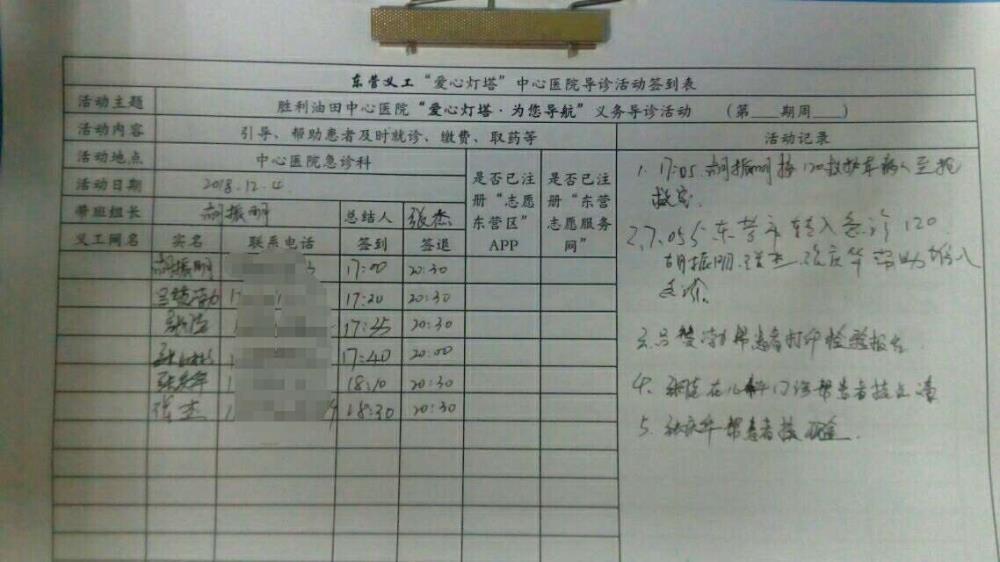 东营义工“爱心灯塔”中心医院导诊活动签到表
活动主题 胜利油田中心医院“爱心灯塔·为您导航”义务导诊活动 (第___期周___)
活动内容 引导、帮助患者及时就诊、缴费、取药等 活动记录
活动地点 中心医院急诊科
活动日期 2018.12.4.
是否已注册“志愿东营区”APP
是否已注册“东营志愿服务网”
带班组长 胡振明 总结人 张杰
义工网名 实名 联系电话 签到 签退
胡振明 17:00 20:30
17:20 20:30
17:25 20:30
17:40 20:00
张庆华 18:10 20:30
张杰 18:30 20:30
1. 17:05 胡振明接120救护车病人至抢
救室
2. 东营市转入急诊120
胡振明、张杰、张庆华帮助
3. 帮患者打印检验报告
4. 在儿科门诊帮患者
5. 张庆华帮患者